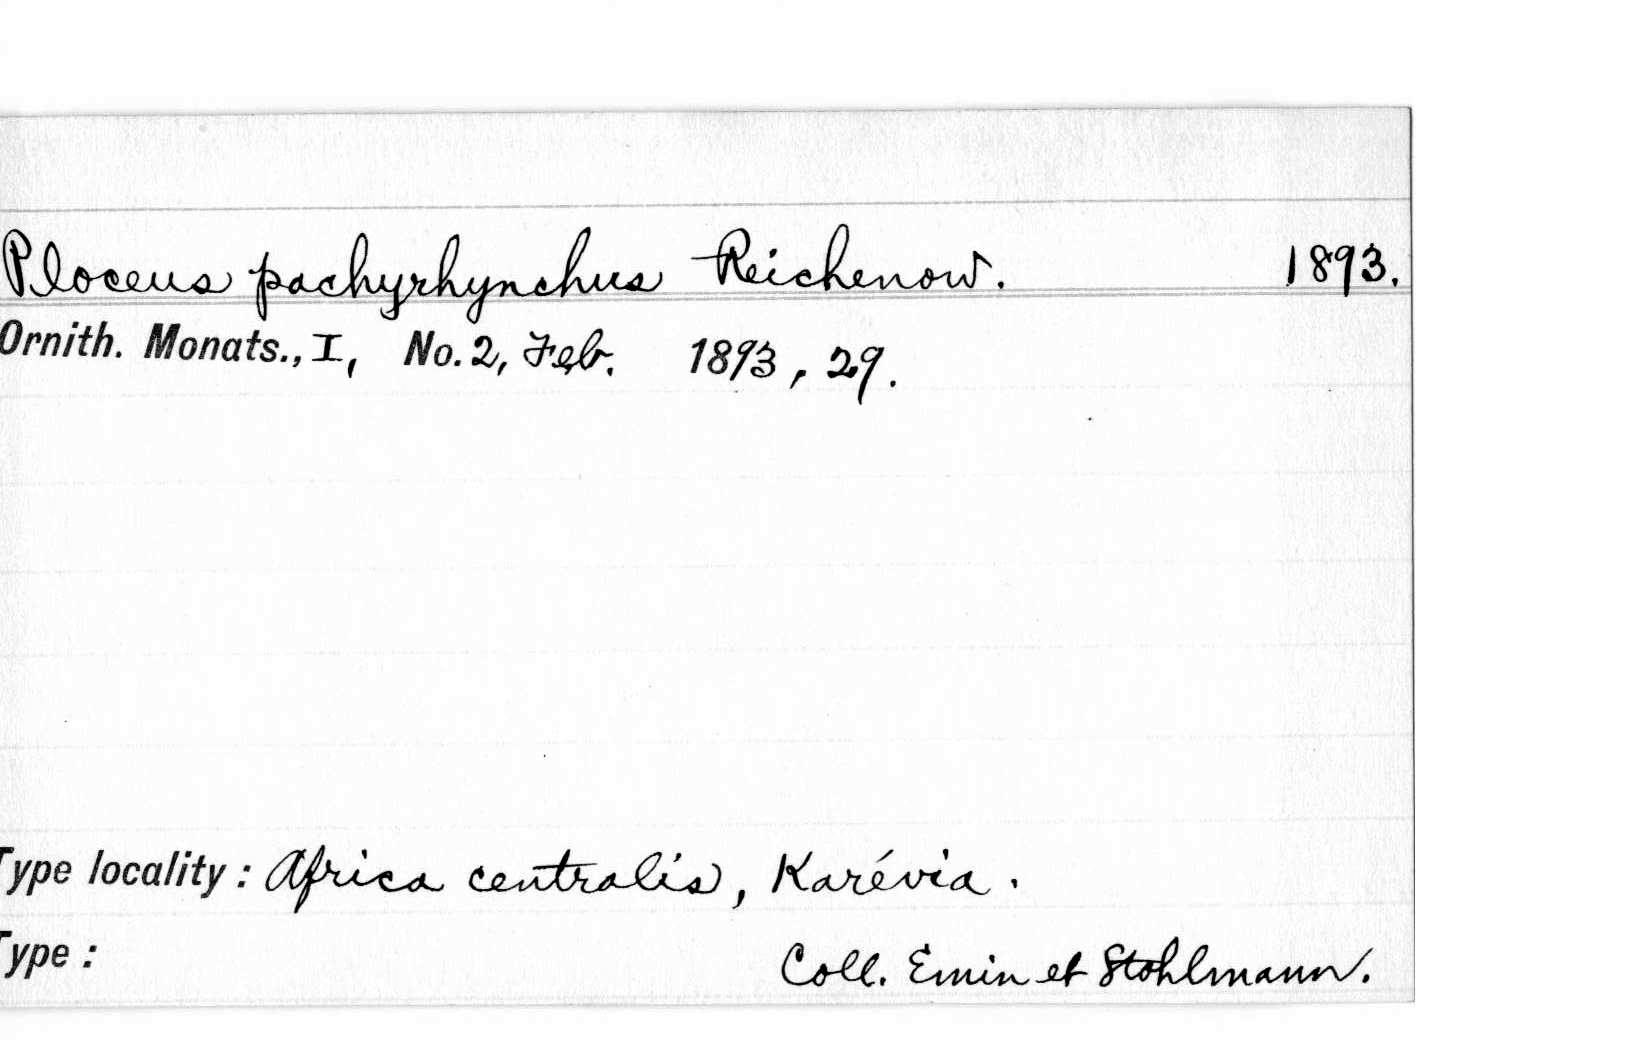 Ploceus pachyrhynchus Reichenow. 1893.
Ornith. Monats., I, No. 2, Feb. 1893, 29.
Type locality: Africa centralis, Karévia.
Type: Coll. Emin et Stohlmann.